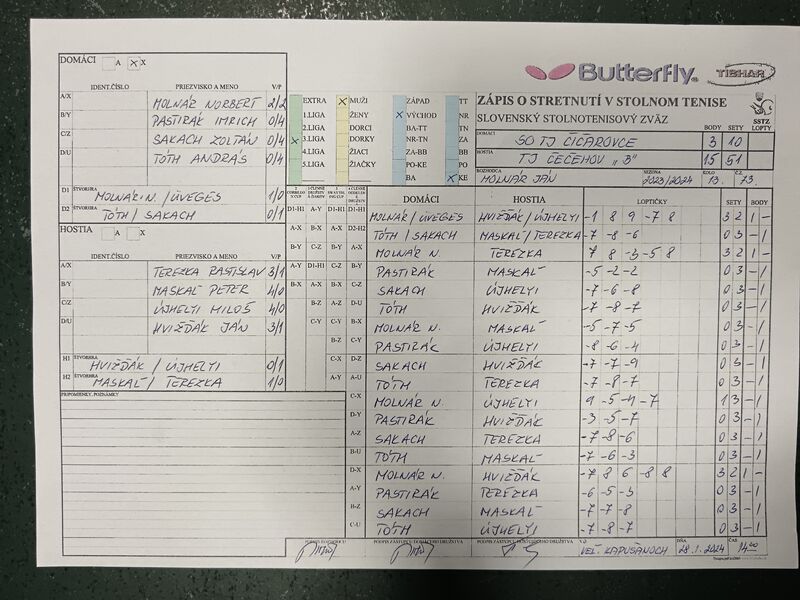 Butterfly. TIBHAR
DOMÁCI A X
IDENT.ČÍSLO PRIEZVISKO A MENO V/P
A/X MOLNÁR NORBERT 2/2
B/Y PASTIRÁK IMRICH 0/4
C/Z SAKACH ZOLTÁN 0/4
D/U TÓTH ANDRÁS 0/4
D1 ŠTVORHRA MOLNÁR N. / ÜVEGES 1/0
D2 ŠTVORHRA TÓTH / SAKACH 0/1
HOSTIA A X
IDENT.ČÍSLO PRIEZVISKO A MENO V/P
A/X TEREZKA RASTISLAV 3/1
B/Y MASKAĽ PETER 4/0
C/Z ÚJHELYI MILOŠ 4/0
D/U HVIŽĎÁK JÁN 3/1
H1 ŠTVORHRA HVIŽĎÁK / ÚJHELYI 0/1
H2 ŠTVORHRA MASKAĽ / TEREZKA 1/0
PRIPOMIENKY, POZNÁMKY
EXTRA MUŽI ZÁPAD TT
1.LIGA ŽENY VÝCHOD NR
2.LIGA DORCI BA-TT TN
3.LIGA DORKY NR-TN ZA
4.LIGA ŽIACI ZA-BB BB
5.LIGA ŽIAČKY PO-KE PO
BA KE
ZÁPIS O STRETNUTÍ V STOLNOM TENISE
SLOVENSKÝ STOLNOTENISOVÝ ZVÄZ
SSTZ
BODY SETY LOPTY
DOMÁCI SO TJ ČIČAROVCE 3 10
HOSTIA TJ ČEČEHOV "B" 15 51
ROZHODCA MOLNÁR JÁN SEZÓNA 2023/2024 KOLO 13. Č.Z. 73
DOMÁCI HOSTIA LOPTIČKY SETY BODY
D1-H1 A-Y D1-H1 D1-H1 MOLNÁR / ÜVEGES HVIŽĎÁK / ÚJHELYI -1 8 9 -7 8 3 2 1 -
A-X B-X A-X D2-H2 TÓTH / SAKACH MASKAĽ / TEREZKA -7 -8 -6 0 3 - 1
B-Y C-Z B-Y A-X MOLNÁR N. TEREZKA 7 8 -3 -5 8 3 2 1 -
A-Y D1-H1 C-Z B-Y PASTIRÁK MASKAĽ -5 -2 -2 0 3 - 1
B-X A-X B-X C-Z SAKACH ÚJHELYI -7 -6 -8 0 3 - 1
B-Z A-Z D-U TÓTH HVIŽĎÁK -7 -8 -7 0 3 - 1
C-Y C-Y A-Y MOLNÁR N. MASKAĽ -5 -7 -5 0 3 - 1
B-Z C-Y PASTIRÁK ÚJHELYI -8 -6 -4 0 3 - 1
C-X D-Z SAKACH HVIŽĎÁK -7 -7 -9 0 3 - 1
A-Y A-U TÓTH TEREZKA -7 -8 -7 0 3 - 1
C-X MOLNÁR N. ÚJHELYI 9 -5 -4 -7 1 3 - 1
D-Y PASTIRÁK HVIŽĎÁK -3 -5 -7 0 3 - 1
A-Z SAKACH TEREZKA -7 -8 -6 0 3 - 1
B-U TÓTH MASKAĽ -7 -6 -3 0 3 - 1
D-X MOLNÁR N. HVIŽĎÁK -7 8 6 -8 8 3 2 1 -
A-Y PASTIRÁK TEREZKA -6 -5 -3 0 3 - 1
B-Z SAKACH MASKAĽ -7 -7 -8 0 3 - 1
C-U TÓTH ÚJHELYI -7 -8 -7 0 3 - 1
PODPIS ROZHODCU PODPIS ZÁSTUPCU DOMÁCEHO DRUŽSTVA PODPIS ZÁSTUPCU HOSŤUJÚCEHO DRUŽSTVA VEĽ. KAPUŠANOCH DŇA 28.1.2024 ČAS 14.00